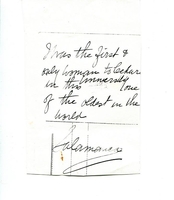 I was the first &
only woman to lectur
in this University (one
of the oldest in the
world
Salamanca